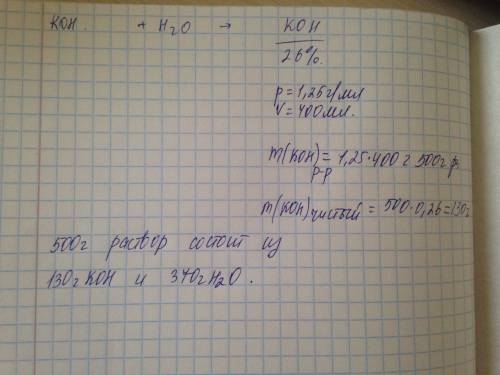 KOH. + H2O → KOH
26%.
ρ = 1,25 г/мл
V = 400 мл.
m(KOH) = 1,25·400 = 500г
р-р
m(KOH)чистый = 500·0,26 = 130г
500г раствор состоит из
130г KOH и 370г H2O.